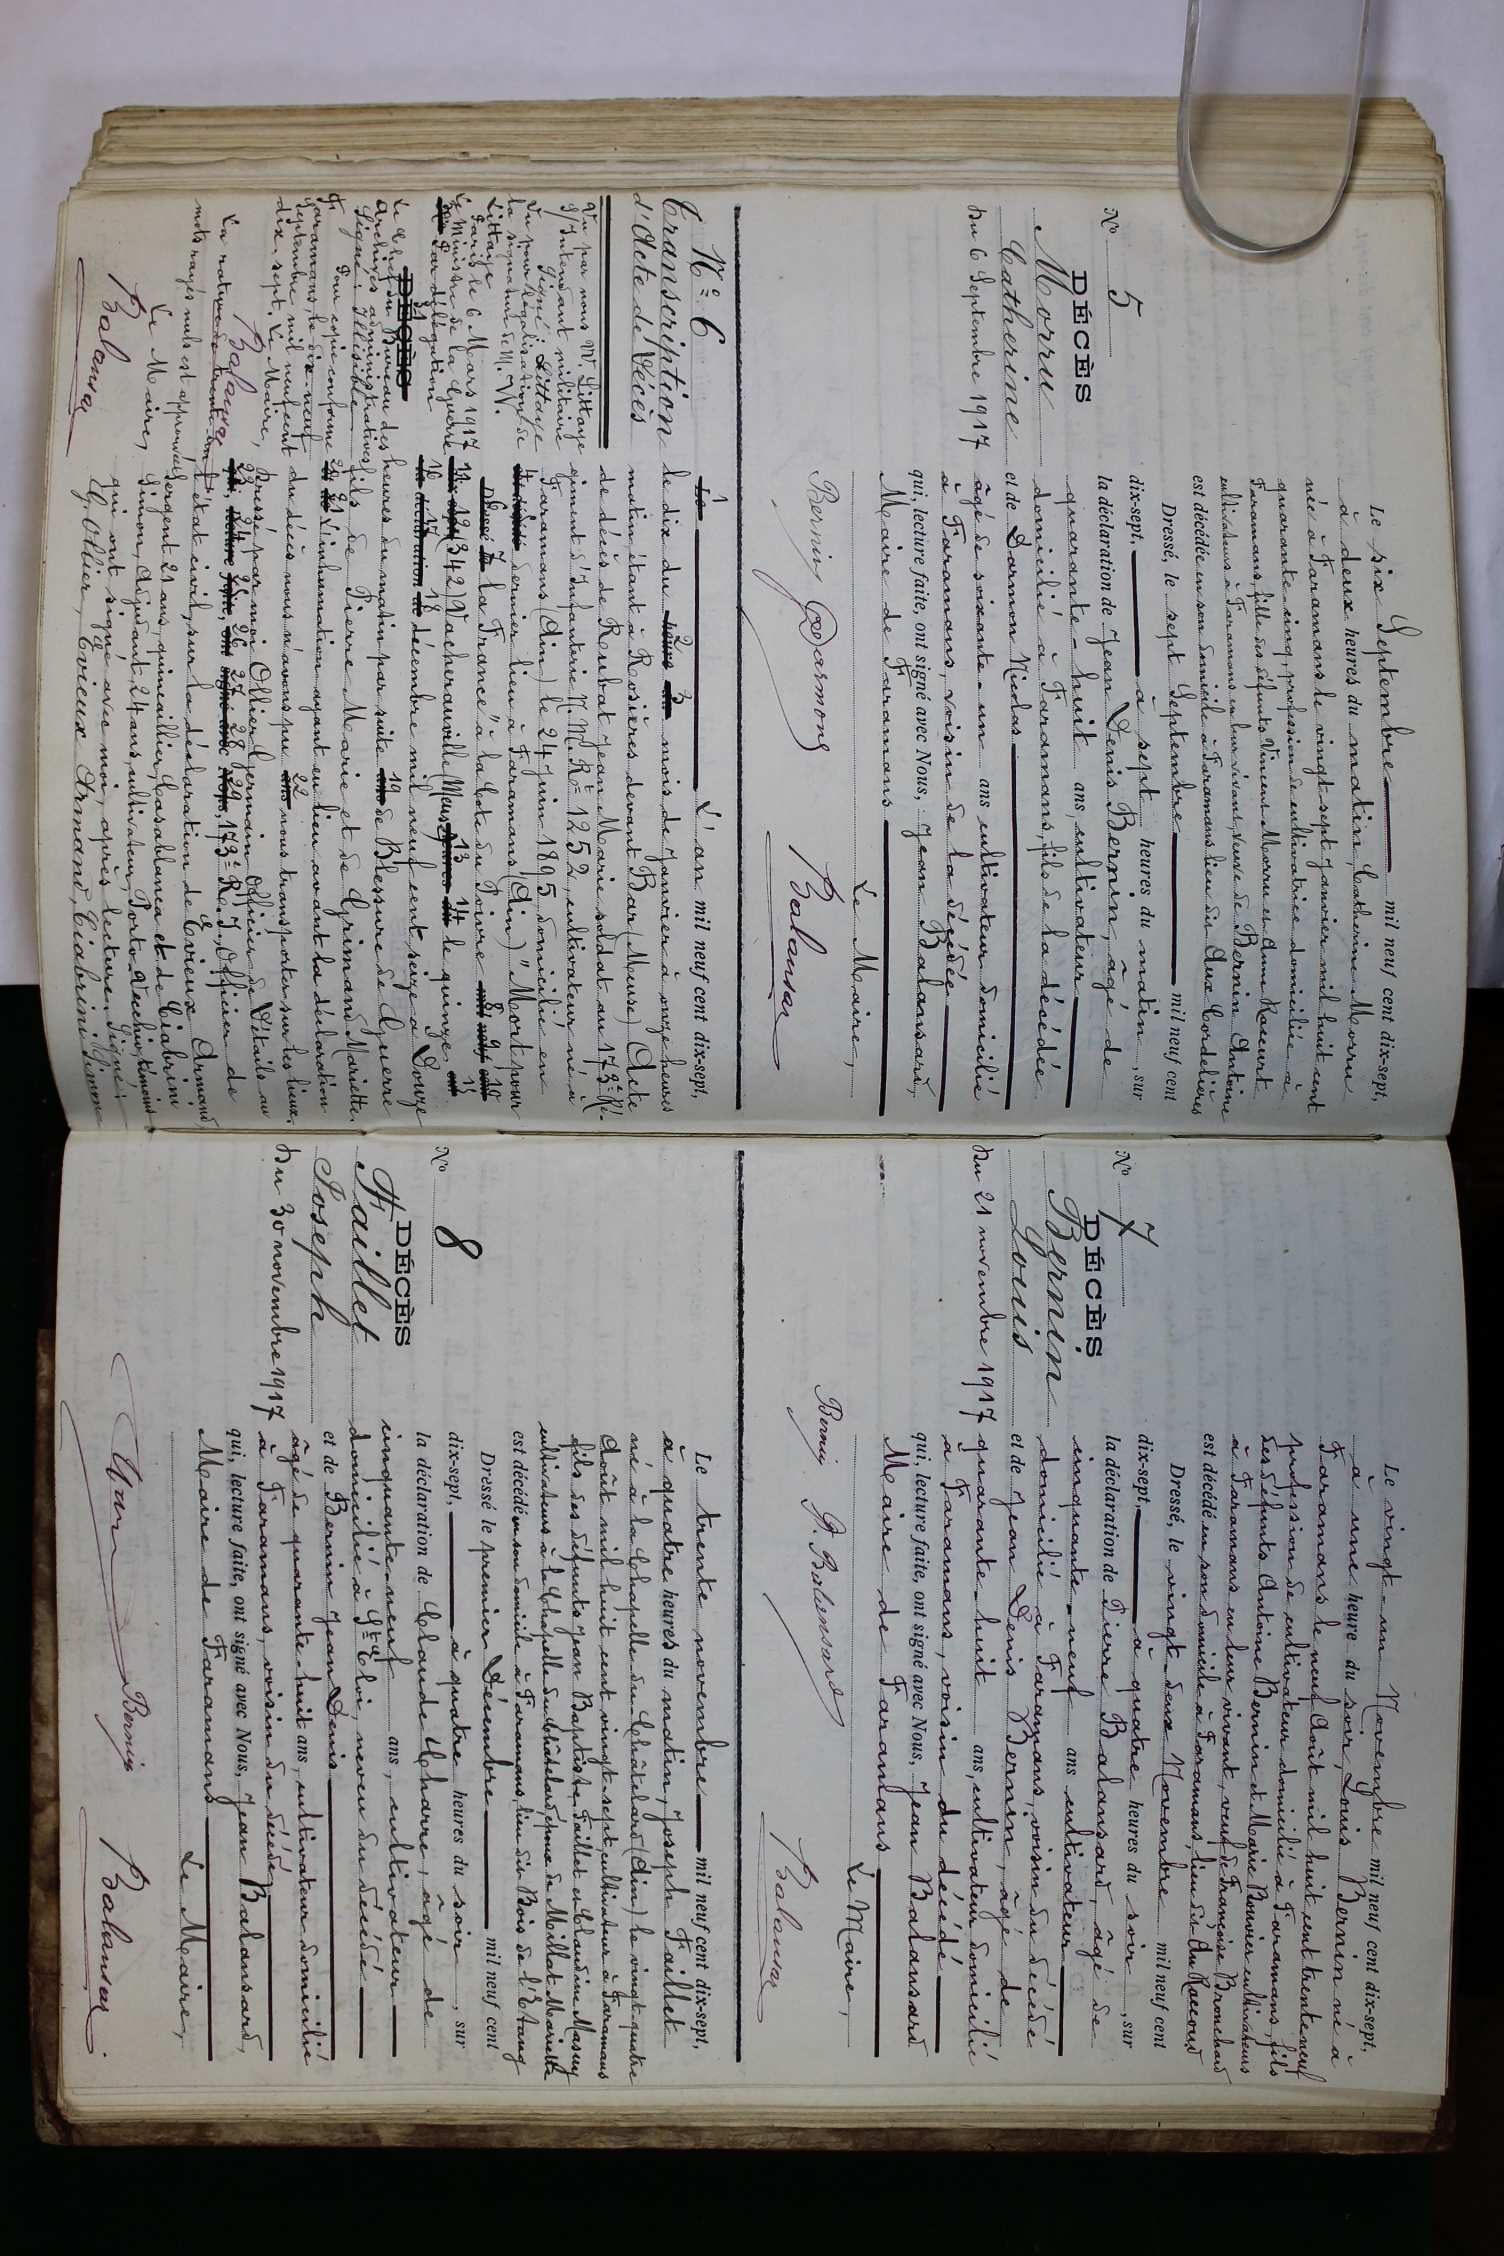 N° 5
DÉCÈS
Morru
Catherine
Du 6 Septembre 1917
Le six Septembre mil neuf cent dix-sept,
à deux heures du matin, Catherine Morru
née à Faramans le vingt-sept Janvier mil huit cent
quarante cinq, profession de cultivatrice domiciliée à
Faramans, fille des défunts Vincent Morru et Anne
cultivateurs à Faramans en leur vivant, veuve de Bernin Antoine
est décédée en son domicile à Faramans lieu dit Aux Cordelières
Dressé, le sept Septembre mil neuf cent
dix-sept, à sept heures du matin, sur
la déclaration de Jean Denis Bernin, âgé de
quarante-huit ans, cultivateur
domicilié à Faramans, fils de la décédée
et de Darmon Nicolas
âgé de soixante-un ans cultivateur domicilié
à Faramans, voisin de la décédée
qui, lecture faite, ont signé avec Nous, Jean Balansard,
Maire de Faramans
Le Maire,
Bernin Darmon Balansar
N° 6
Transcription
d'Acte de Décès
Vu par nous W. Littaye
s/Intendant militaire
Signé: Littaye
Vu pour légalisation de
la signature de M. W.
Littaye
Paris le 6 Mars 1917
Le Ministre de la Guerre
Par délégation
Le Chef du Bureau des
Archives administratives
Signé: Illisible
Pour copie conforme
Faramans, le dix-neuf
Septembre mil neuf cent
dix-sept, Le Maire,
Balansar
La rature de trente un
mots rayés nuls est approuvée
Le Maire,
Balansar
L'an mil neuf cent dix-sept,
le dix du mois de Janvier à onze heures
matin, étant à Rosières devant Bar (Meuse) Acte
de décès de Roubat Jean Marie soldat au 173e Ré-
giment d'Infanterie N. M. Re 1252, cultivateur né à
Faramans (Ain) le 24 Juin 1895 domicilié en
dernier lieu à Faramans (Ain) "Mort pour
la France" à la Côte du Poivre
(342) Vacherauville (Meuse) le quinze
décembre mil neuf cent seize à Douze
heures du matin par suite de Blessure de Guerre
fils de Pierre Marie et de Grimand Mariette.
L'inhumation ayant eu lieu avant la déclaration
du décès nous n'avons pu nous transporter sur les lieux.
Dressé par moi Ollier Germain Officier de Détails au
173e R. I., Officier de
l'état civil, sur la déclaration de Evieux Armand
Sergent 21 ans, quincaillier, Casablanca et de Ciabrini
Simon, Adjudant, 24 ans, cultivateur, Porto-Vecchio, témoins
qui ont signé avec moi, après lecture. Signé:
G. Ollier, Evieux Armand, Ciabrini Simon
N° 7
DÉCÈS
Bernin
Louis
Du 21 novembre 1917
Le vingt-un Novembre mil neuf cent dix-sept,
à une heure du soir, Louis Bernin né à
Faramans le neuf Août mil huit cent trente neuf
profession de cultivateur domicilié à Faramans, fils
des défunts Antoine Bernin et Marie Bouvier cultivateurs
à Faramans en leur vivant, veuf de Françoise Bronchard
est décédé en son domicile à Faramans, lieu dit Au Raccourd
Dressé, le vingt-deux Novembre mil neuf cent
dix-sept, à quatre heures du soir, sur
la déclaration de Pierre Balansard, âgé de
cinquante-neuf ans cultivateur
domicilié à Faramans, voisin du décédé
et de Jean Denis Bernin, âgé de
quarante-huit ans, cultivateur domicilié
à Faramans, voisin du décédé
qui, lecture faite, ont signé avec Nous, Jean Balansard
Maire de Faramans
Le Maire,
Bernin P. Balansard Balansar
N° 8
DÉCÈS
Faillet
Joseph
Du 30 novembre 1917
Le trente novembre mil neuf cent dix-sept,
à quatre heures du matin, Joseph Faillet
né à la Chapelle du Châtelard (Ain) le vingt-quatre
Août mil huit cent vingt-sept, cultivateur à Faramans
fils des défunts Jean Baptiste Faillet et Claudine Massuy
cultivateurs à la Chapelle du Châtelard, époux de Millat Mariette
est décédé en son domicile à Faramans, lieu dit Bois de l'Etang
Dressé le premier Décembre mil neuf cent
dix-sept, à quatre heures du soir, sur
la déclaration de Claude Charre, âgé de
cinquante-neuf ans, cultivateur
domicilié à Ste Eloi, neveu du décédé
et de Bernin Jean Denis
âgé de quarante-huit ans, cultivateur domicilié
à Faramans, voisin du décédé
qui, lecture faite, ont signé avec Nous, Jean Balansard,
Maire de Faramans
Le Maire,
Bernin Balansar